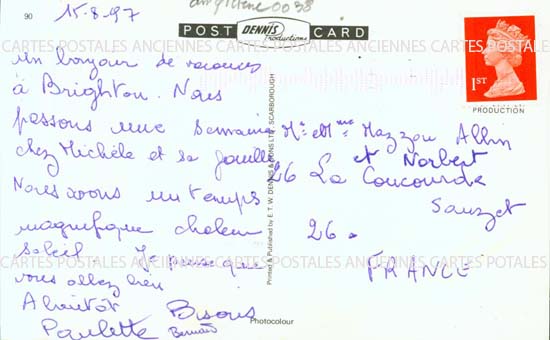 90
15-8-97
angleterre 0038
POST DENNIS Productions CARD
1ST
PRODUCTION
CARTES POSTALES ANCIENNES CARTES POSTALES ANCIENNES CARTES POSTALES
un bonjour de vacances
à Brighton. Nous
passons une semaine
chez Michèle et sa famille
Nous avons un temps
magnifique chaleur
soleil. Je pense que
vous allez bien
A bientôt Bisous
Paulette Bernard
Printed & Published by E. T. W. DENNIS & SONS LTD., SCARBOROUGH
Mr et Mme Mazzou
et Norbert
26 La Coucourde
Sauzet
26.
FRANCE
CARTES POSTALES ANCIENNES CARTES POSTALES ANCIENNES CARTES POTALES
Photocolour